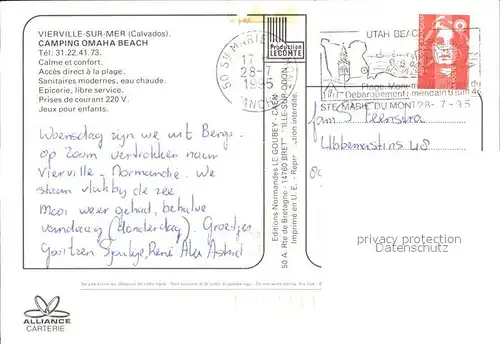 VIERVILLE-SUR-MER (Calvados).
CAMPING OMAHA BEACH
Tél: 31.22.41.73.
Calme et confort.
Accès direct à la plage.
Sanitaires modernes, eau chaude.
Epicerie, libre service.
Prises de courant 220 V.
Jeux pour enfants.
Woensdag zijn we uit Bergen
op Zoom vertrokken naar
Vierville - Normandie. We
staan vlakbij de zee
Mooi weer gehad, behalve
vandaag (donderdag). Groetjes
René Alex Astrid
ALLIANCE
CARTERIE
Production
LECONTE
50 STE MARIE
17
28-7
1995
Editions Normandes LE GOUBEY - CAEN
50 A, Rte de Bretagne - 14760 BRET
Imprimé en U.E. - Repr
UTAH BEACH
Plage, Monum
Débarquement américain 6 juin 44
STE MARIE DU MONT 28-7-95
Fam. Feenstra
48
privacy protection
Datenschutz